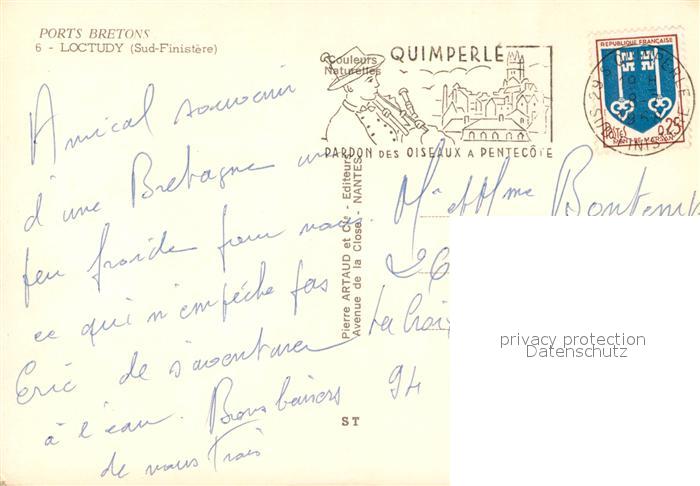 PORTS BRETONS
6 - LOCTUDY (Sud-Finistère)
Couleurs
Naturelles
QUIMPERLÉ
PARDON DES OISEAUX A PENTECÔTE
REPUBLIQUE FRANÇAISE
POSTES 0,25
MONT-DE-MARSAN
Amical souvenir
d'une Bretagne un
peu froide pour nous.
ce qui n'empêche pas
Eric de s'aventurer
à l'eau. Bons baisers
de nous Trois
Pierre ARTAUD et Cie - Editeurs
Avenue de la Close - NANTES
ST
Mr et Mme
26
La Croix
94
privacy protection
Datenschutz